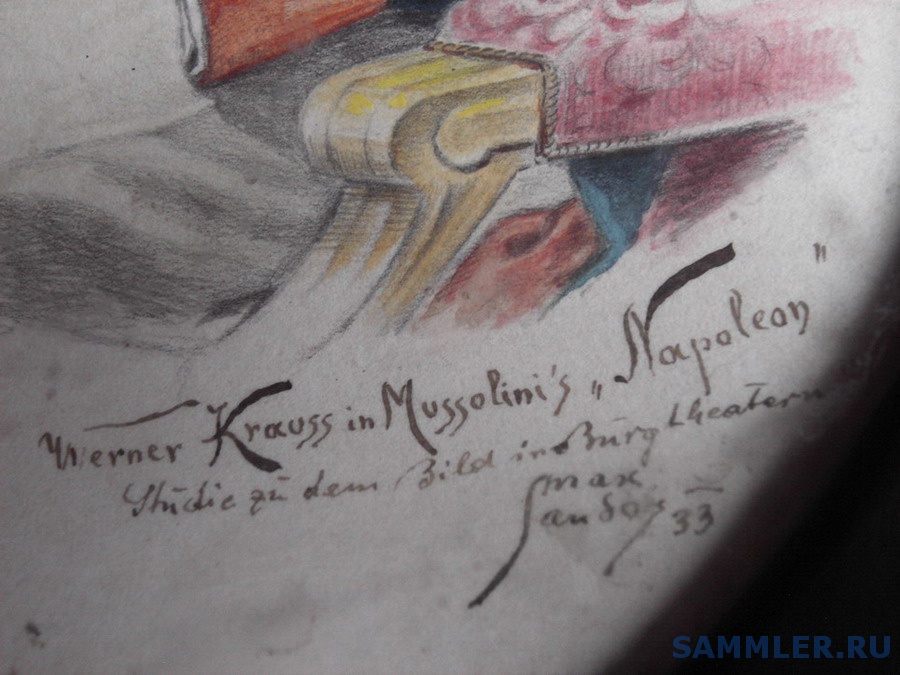 Werner Krauss in Mussolini's „Napoleon"
Studie zu dem Bild im Burgtheater
max
33
SAMMLER.RU